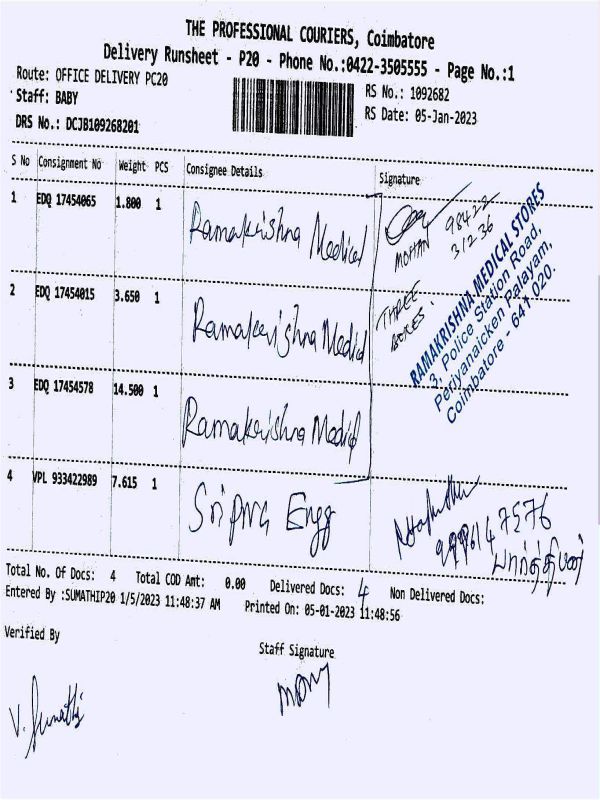 THE PROFESSIONAL COURIERS, Coimbatore
Delivery Runsheet - P20 - Phone No.:0422-3505555 - Page No.:1
Route: OFFICE DELIVERY PC20
RS No.: 1092682
Staff: BABY
RS Date: 05-Jan-2023
DRS No.: DCJB109268201
S No Consignment No Weight PCS Consignee Details Signature
1 EDQ 17454065 1.800 1 Ramakrishna Medical
MOHAN 98422
31236
2 EDQ 17454015 3.650 1 Ramakrishna Medical
THREE
BOXES.
RAMAKRISHNA MEDICAL STORES
3, Police Station Road,
Periyanaicken Palayam,
Coimbatore - 641 020.
3 EDQ 17454578 14.500 1 Ramakrishna Medical
4 VPL 933422989 7.615 1 Sri Engg
பார்த்திபன்
Total No. Of Docs: 4 Total COD Amt: 0.00 Delivered Docs: 4 Non Delivered Docs:
Entered By :SUMATHIP20 1/5/2023 11:48:37 AM Printed On: 05-01-2023 11:48:56
Verified By
Staff Signature
V. Sumathi